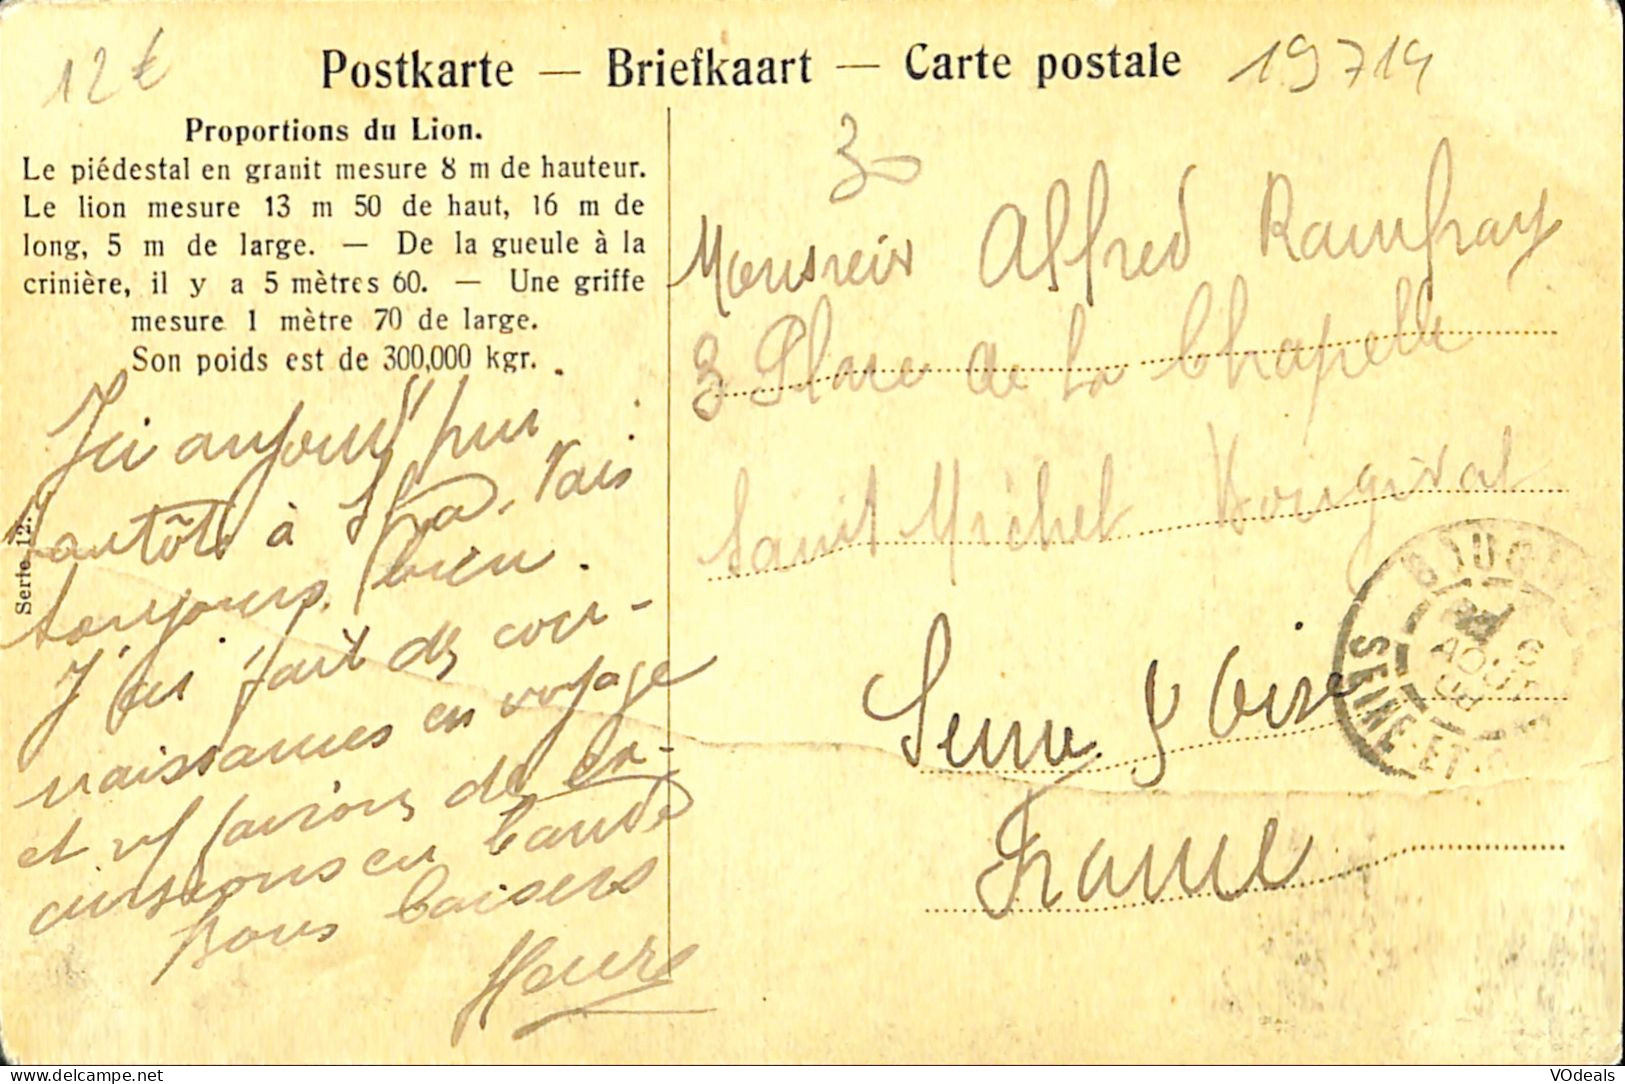 12€
Postkarte — Briefkaart — Carte postale
19714
Proportions du Lion.
Le piédestal en granit mesure 8 m de hauteur.
Le lion mesure 13 m 50 de haut, 16 m de
long, 5 m de large. — De la gueule à la
crinière, il y a 5 mètres 60. — Une griffe
mesure 1 mètre 70 de large.
Son poids est de 300,000 kgr.
Serie 12.
Ici aujourd'hui
tantôt à Spa. Vais
toujours bien.
J'ai fait des con-
naissances en voyage
et ns faisons des ex-
cursions en bande
Bons baisers
Henri
30
Monsieur Alfred
3 Place de la Chapelle
Saint Michel Bougival
Seine & Oise
France
BOUGIVAL
SEINE-ET-